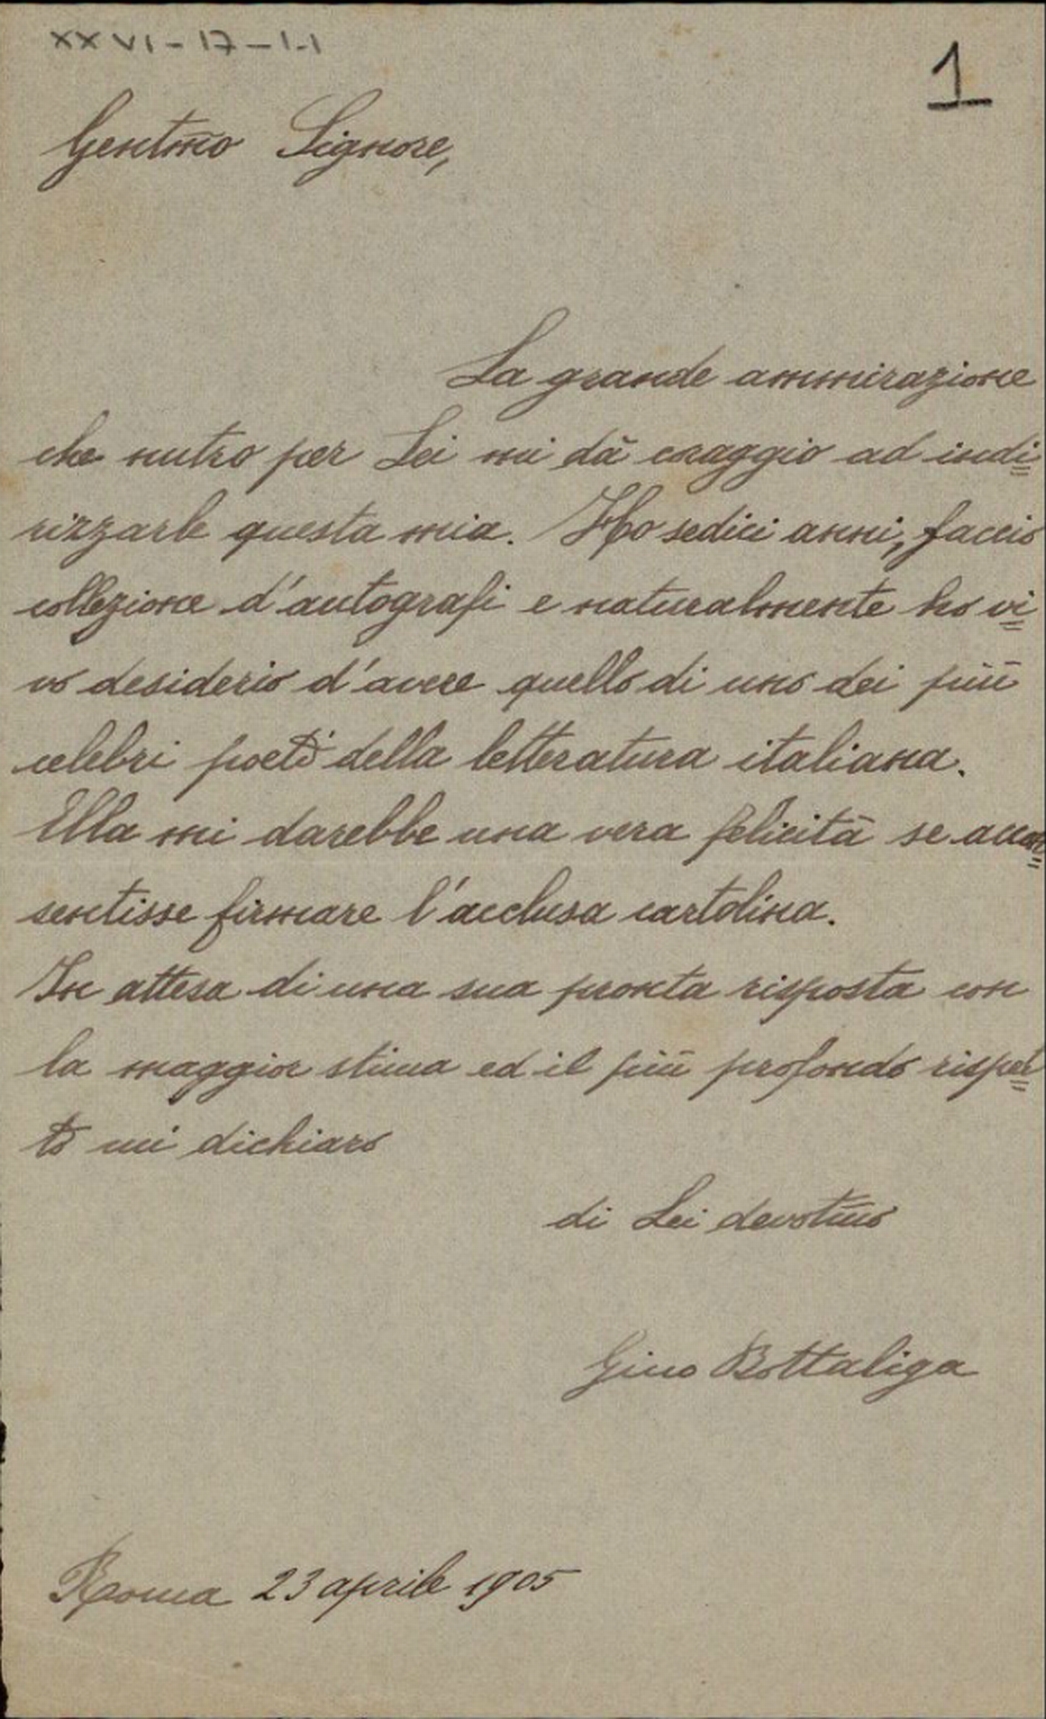 XXVI-17-1-1
1
Gentmo Signore,
La grande ammirazione
che nutro per Lei mi dà coraggio ad indi=
rizzarle questa mia. Ho sedici anni, faccio
collezione d'autografi e naturalmente ho vi=
vo desiderio d'avere quello di uno dei più
celebri poeti della letteratura italiana.
Ella mi darebbe una vera felicità se accon=
sentisse firmare l'acclusa cartolina.
In attesa di una sua pronta risposta con
la maggior stima ed il più profondo rispet=
to mi dichiaro
di Lei devotmo
Gino Bottaliga
Roma 23 aprile 1905